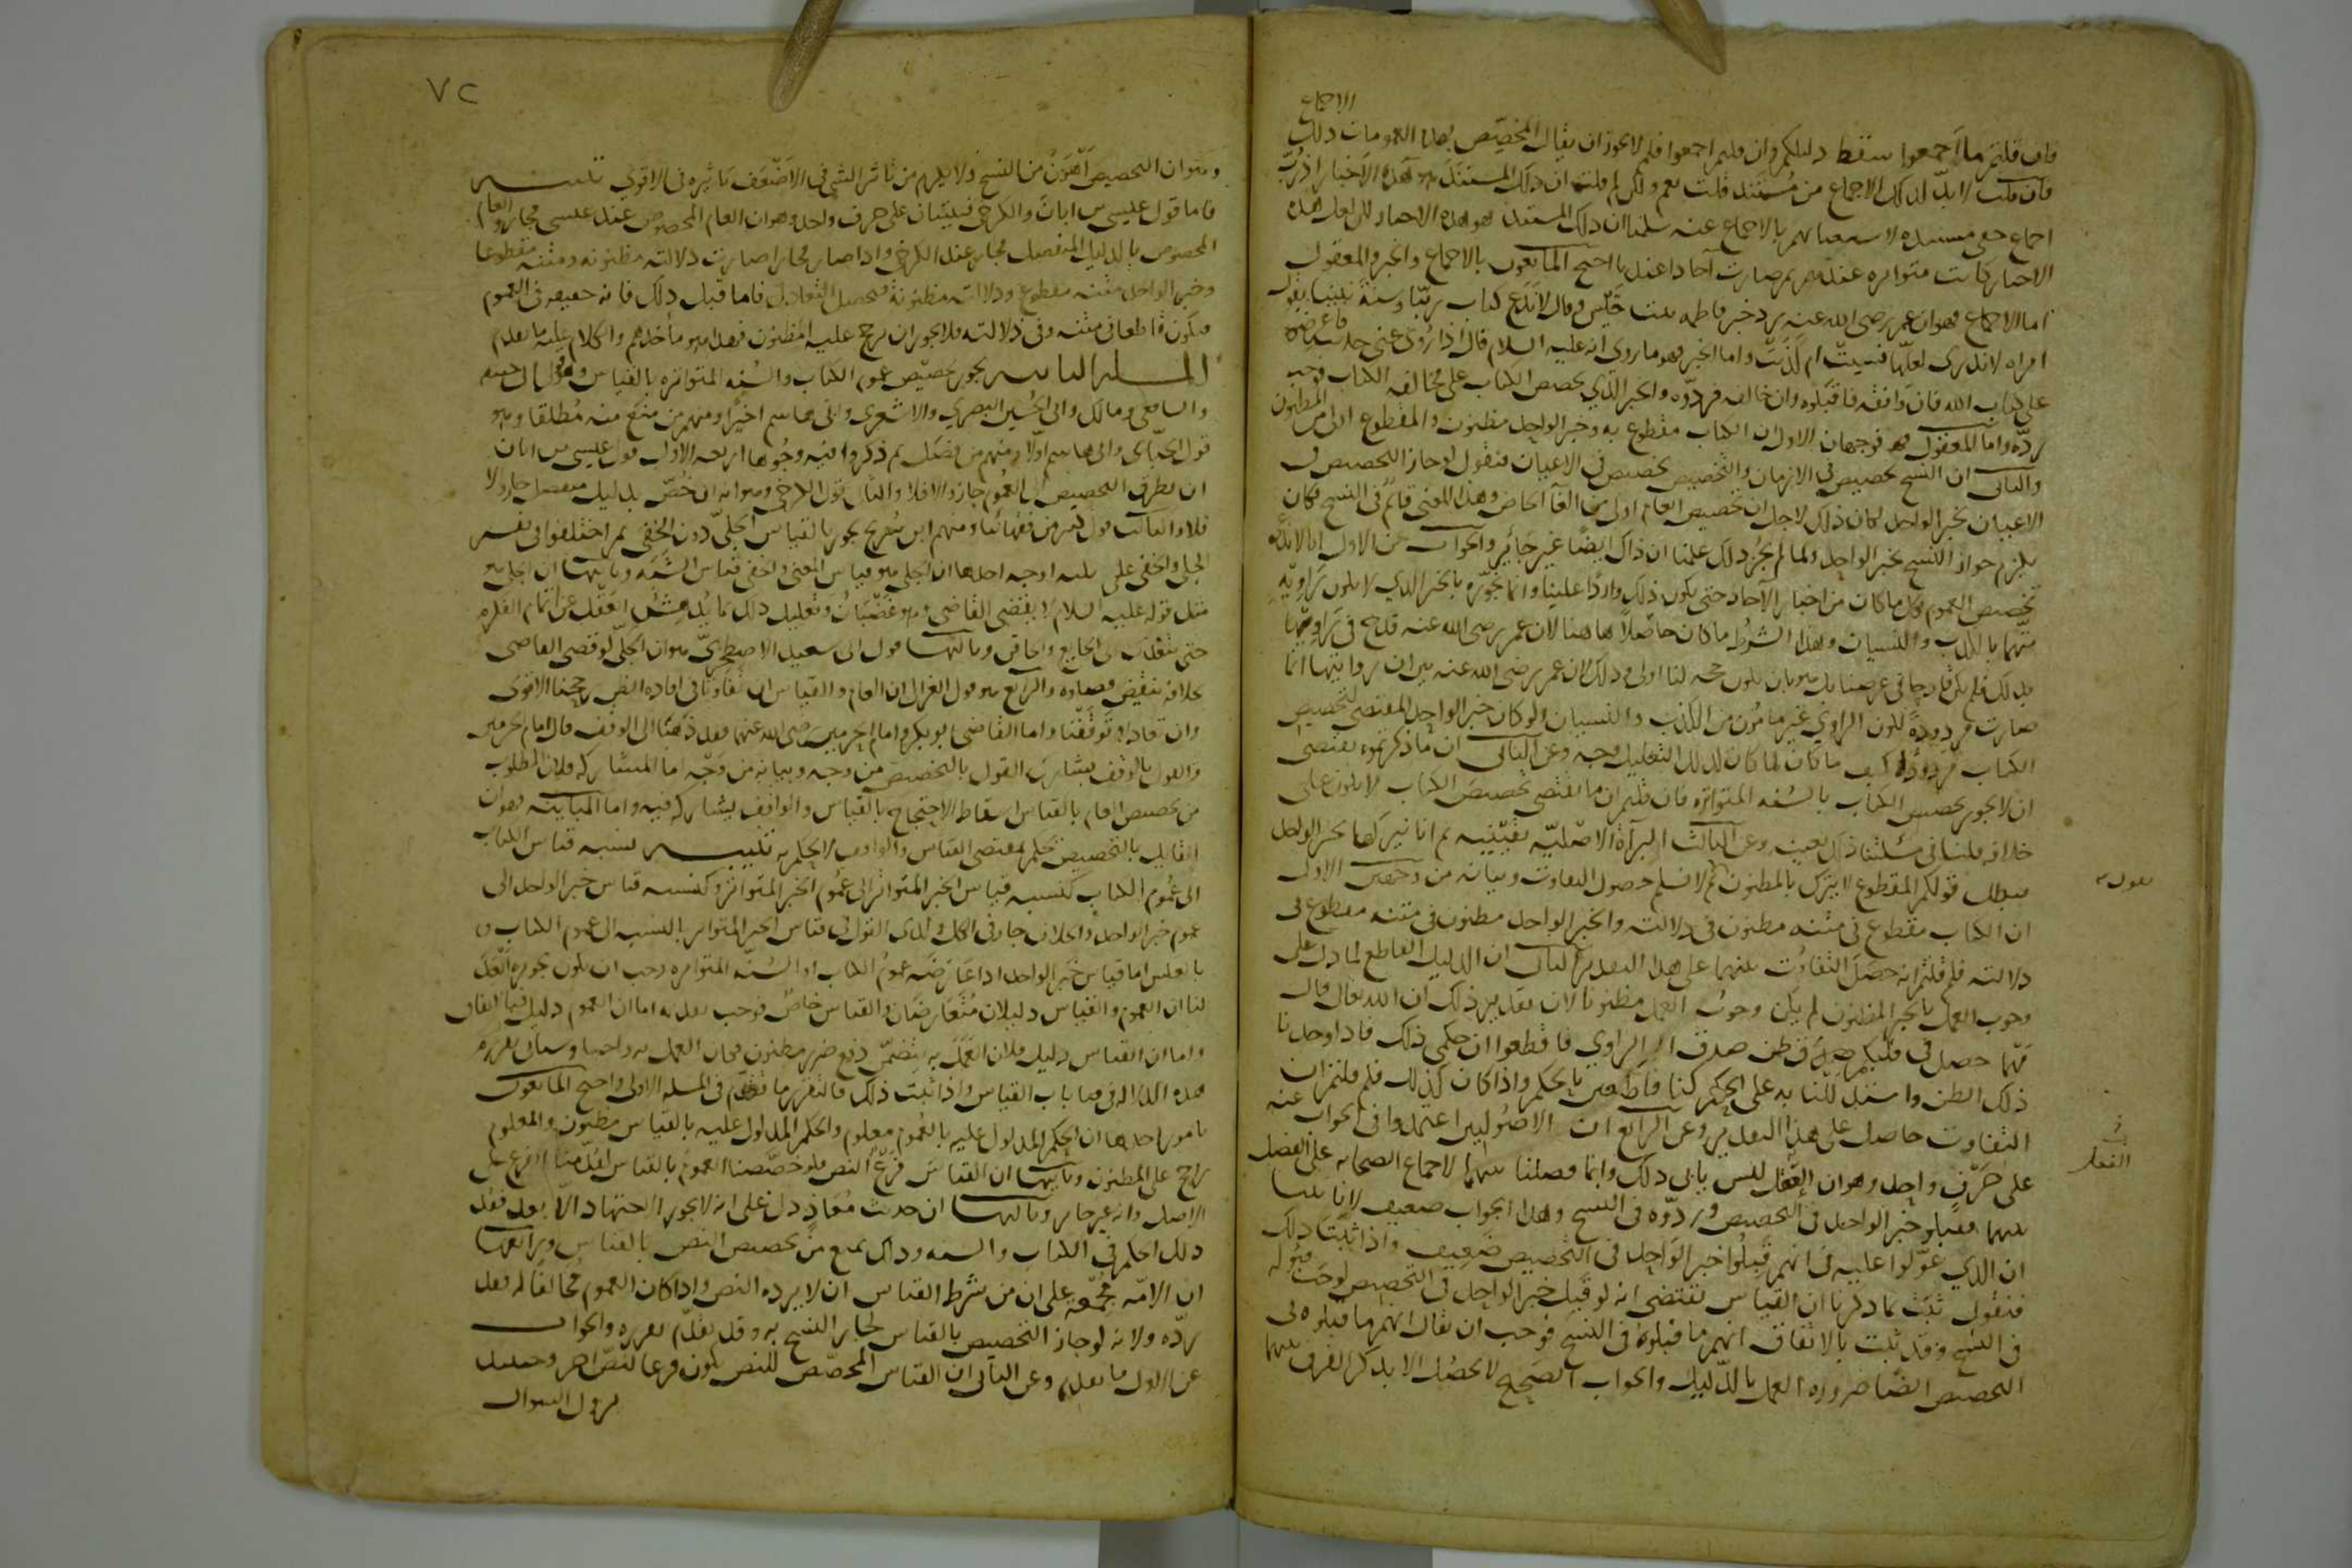 الاجماع
فان قلتم ما اجمعوا سقط دليلكم وان قلتم اجمعوا فلم لا يجوز ان يقال المخصص لهذه العمومات ذلك
فان قلت لا بد لذلك الاجماع من مستند قلت نعم ولكن لم قلت ان ذلك المستند هو هذه الاخبار اذ رب
اجماع خفى مستنده لاستغنائهم بالاجماع عنه سلمنا ان ذلك المستند هو هذه الاخبار لكن لعل هذه
الاخبار كانت متواترة عندهم ثم صارت آحادا عندنا احتج المانعون بالاجماع والخبر والمعقول
اما الاجماع فهو ان عمر رضى الله عنه رد خبر فاطمه بنت قيس وقال لا ندع كتاب ربنا وسنة نبينا بقول
امراه لا ندرى لعلها نسيت ام كذبت واما الخبر فهو ما روى انه عليه السلام قال اذا روى عنى حديث فاعرضوه
على كتاب الله فان وافقه فاقبلوه وان خالفه فردوه والخبر الذي يخصص الكتاب على مخالفة الكتاب فوجب
رده واما المعقول فوجهان الاول ان الكتاب مقطوع به وخبر الواحد مظنون والمقطوع اولى من المظنون
والثانى ان النسخ تخصيص في الازمان والتخصيص تخصيص في الاعيان فنقول لو جاز التخصيص في
الاعيان بخبر الواحد لكان ذلك لاجل ان تخصيص العام اولى من الغآ الخاص وهذا المعنى قائم في النسخ فكان
يلزم جواز النسخ بخبر الواحد ولما لم يجز ذلك علمنا ان ذاك ايضا غير جائز والجواب عن الاول انا لا ندعى
تخصيص العموم بكل ما كان من اخبار الآحاد حتى يكون ذلك واردا علينا وانما نجوزه بالخبر الذي لا يكون راويه
متهما بالكذب والنسيان وهذا الشرط ما كان حاصلا هاهنا لان عمر رضى الله عنه قدح في راويتها
بذلك فلم يكن قادحا في غرضنا بل هو بان يكون حجه لنا اولى وذلك لان عمر رضى الله عنه بين ان روايتها انما
صارت مردودة لكون الراوي غير مامون من الكذب والنسيان ولو كان خبر الواحد المقتضى لتخصيص
الكتاب مردودا كيف ما كان لما كان لذلك التعليل وجه وعن الثانى ان ما ذكرتموه يقتضى
ان لا يجوز تخصيص الكتاب بالسنه المتواتره فان قلتم ان ما يقتضى تخصيص الكتاب لا يكون على
خلافه قلنا في مسئلتنا ذلك بعينه وعن الثالث البرآة الاصلية يقينية ثم انا نتركها بخبر الواحد
فبطل قولكم المقطوع لا يترك بالمظنون ثم لا نسلم حصول التفاوت وبيانه من وجهين الاول
ان الكتاب مقطوع في متنه مظنون في دلالته والخبر الواحد مظنون في متنه مقطوع في
دلالته فلم قلتم انه حصل التفاوت بينهما على هذا التقدير الثانى ان الدليل القاطع لما دل على
وجوب العمل بالخبر المظنون لم يكن وجوب العمل مظنونا لان تقدير ذلك ان الله تعالى قال
مهما حصل في قلبكم ظن صدق الراوي فاقطعوا ان حكمى ذلك فاذا وجدنا
ذلك الظن واستدللنا به على الحكم كنا قاطعين بالحكم واذا كان كذلك فلم قلتم ان
التفاوت حاصل على هذا التقدير وعن الرابع ان الاصوليين اعتمدوا في الجواب عنه
على حرف واحد وهو ان العقل ليس يابى ذلك وانما فصلنا بينهما لاجماع الصحابه على الفصل
بينهما فقبلو خبر الواحد في التخصيص وردوه في النسخ وهذا الجواب ضعيف لانا بينا
ان الذي عولوا عليه في انهم قبلوا خبر الواحد في التخصيص ضعيف واذا ثبت ذلك
فنقول ثبت بما ذكرنا ان القياس يقتضى انه لو قبل خبر الواحد في التخصيص لوجب قبوله
في النسخ وقد ثبت بالاتفاق انهم ما قبلوه في النسخ فوجب ان يقال انهم ما قبلوه في
التخصيص ايضا ضرورة العمل بالدليل والجواب الصحيح لا يحصل الا بذكر الفرق بينهما
٧٢
وهو ان التخصيص اهون من النسخ ولا يلزم من تاثر الشى في الاضعف تاثيره في الاقوى تنبيه
فاما قول عيسى بن ابان والكرخى فيبنيان على حرف واحد وهو ان العام المخصوص عند عيسى مجاز والعام
المخصوص بالدليل المنفصل مجاز عند الكرخى واذا صار مجازا صارت دلالته مظنونه ومتنه مقطوعا
وخبر الواحد متنه مظنون ودلالته مقطوعة فيحصل التعادل فاما قبل ذلك فانه حقيقه في العموم
فيكون قاطعا في متنه وفى دلالته فلا يجوز ان يرجح عليه المظنون فهذا هو ماخذهم والكلام عليه ما تقدم
المسله الثامنه يجوز تخصيص عموم الكتاب والسنه المتواتره بالقياس وهو قول ابى حنيفه
والشافعى ومالك وابى الحسين البصري والاشعرى وابى هاشم اخيرا ومنهم من منع منه مطلقا وهو
قول الجبائى وابى هاشم اولا ومنهم من فصل ثم ذكروا فيه وجوها اربعه الاول قول عيسى بن ابان
ان تطرق التخصيص الى العموم جاز والا فلا والثانى قول الكرخى وهو انه ان خص بدليل منفصل جاز والا
فلا والثالث قول كثير من فقهائنا ومنهم ابن سريج يجوز بالقياس الجلى دون الخفى ثم اختلفوا في تفسير
الجلى والخفى على ثلثه اوجه احدها ان الجلى هو قياس المعنى والخفى قياس الشبه وثانيها ان الجلى هو
مثل قوله عليه السلام لا يقضى القاضى وهو غضبان وتعليل ذلك بما يدهش العقل عن اتمام الفكره
حتى يتعدى الى الجايع والحاقن وثالثها قول ابى سعيد الاصطخرى هو ان الجلى لو قضى القاضى
بخلافه ينقض قضاوه والرابع هو قول الغزالى ان العام والقياس ان تفاوتا في افاده الظن رجحنا الاقوى
وان تعادلا توقفنا واما القاضى ابو بكر وامام الحرمين رضى الله عنهما فقد ذهبا الى الوقف قال امام الحرمين
والقول بالوقف يشارك القول بالتخصيص من وجه ويباينه من وجه اما المشاركه فلان المطلوب
من تخصيص العام بالقياس اسقاط الاحتجاج بالقياس والواقف يشاركه فيه واما المباينه فهو ان
القايل بالتخصيص يحكم بمقتضى القياس والواقف لا يحكم به تنبيه نسبه قياس الكتاب
الى عموم الكتاب كنسبه قياس الخبر المتواتر الى عموم الخبر المتواتر وكنسبه قياس خبر الواحد الى
عموم خبر الواحد والخلاف جار في الكل وكذى القول في قياس الخبر المتواتر بالنسبه الى عموم الكتاب و
بالعكس اما قياس خبر الواحد اذا عارضه عموم الكتاب او السنه المتواتره وجب ان يكون تجويزه ابعد
لنا ان العموم والقياس دليلان متعارضان والقياس خاص فوجب تقديمه اما ان العموم دليل فبالاتفاق
واما ان القياس دليل فلان العمل به يتضمن دفع ضرر مظنون فكان العمل به واجبا وسياتى تقرير
هذه الدلاله في باب القياس واذا ثبت ذلك فالتقرير ما تقدم في المسله الاولى واحتج المانعون
بامور احدها ان الحكم المدلول عليه بالعموم معلوم والحكم المدلول عليه بالقياس مظنون والمعلوم
راجح على المظنون وثانيها ان القياس فرع النص فلو خصصنا العموم بالقياس لقدمنا الفرع على
الاصل وانه غير جايز وثالثها ان حديث معاذ دل على انه لا يجوز الاجتهاد الا بعد فقد
ذلك الحكم في الكتاب والسنه وذلك يمنع من تخصيص النص بالقياس ورابعها
ان الامه مجمعة على ان من شرط القياس ان لا يرده النص واذا كان العموم مخالفا له فقد
رده ولانه لو جاز التخصيص بالقياس لجاز النسخ به وقد تقدم تقريره والجواب
عن الاول ما تقدم وعن الثانى ان القياس المخصص للنص يكون فرعا لنص اخر وحينئذ
يزول السوال